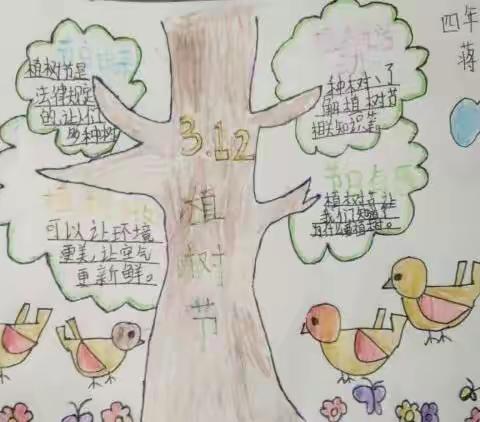 四年
蒋
3.12
植
树
节
植树节是
法律规定
的,让人们
多种树
种树、了
解植树节
相关知识等。
可以让环境
更美,让空气
更新鲜。
节日
植树节让
我们知道了